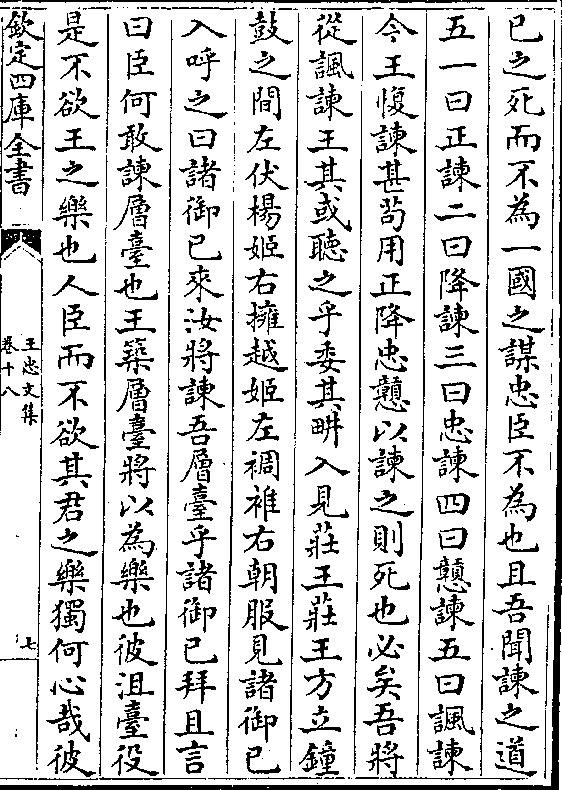 已之死而不為一國之謀忠臣不為也且吾聞諫之道
五一曰正諫二曰降諫三曰忠諫四曰戇諫五曰諷諫
今王愎諫甚茍用正降忠戇以諫之則死也必矣吾將
從諷諫王其或聽之乎委其畊入見莊王莊王方立鐘
鼓之間左伏楊姬右擁越姬左裯袵右朝服見諸御已
入呼之曰諸御已來汝將諫吾層臺乎諸御已拜且言
曰臣何敢諫層臺也王築層臺將以為樂也彼沮臺役
是不欲王之樂也人臣而不欲其君之樂獨何心哉彼
欽定四庫全書
王忠文集
卷十八
七